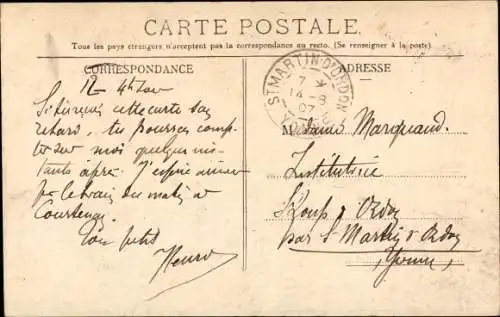 CARTE POSTALE.
Tous les pays étrangers n'acceptent pas la correspondance au recto. (Se renseigner à la poste).
CORRESPONDANCE
ADRESSE
ST MARTIN-D'ORDON
7
14 -8
07
YONNE
12 4h soir
Si tu reçois cette carte sans
retard, tu pourras comp-
ter sur moi quelques ins-
tants après. J'espère arriver
par le train du matin à
Courtenay.
Ton petit
Henri
Madame Marquand.
Institutrice
St Loup d'Ordon
par St Martin d'Ordon
Yonne